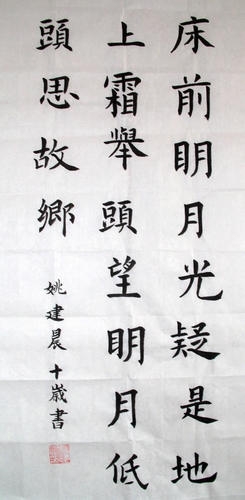 床前明月光疑是地
上霜舉頭望明月低
頭思故鄉
姚建晨十歲書